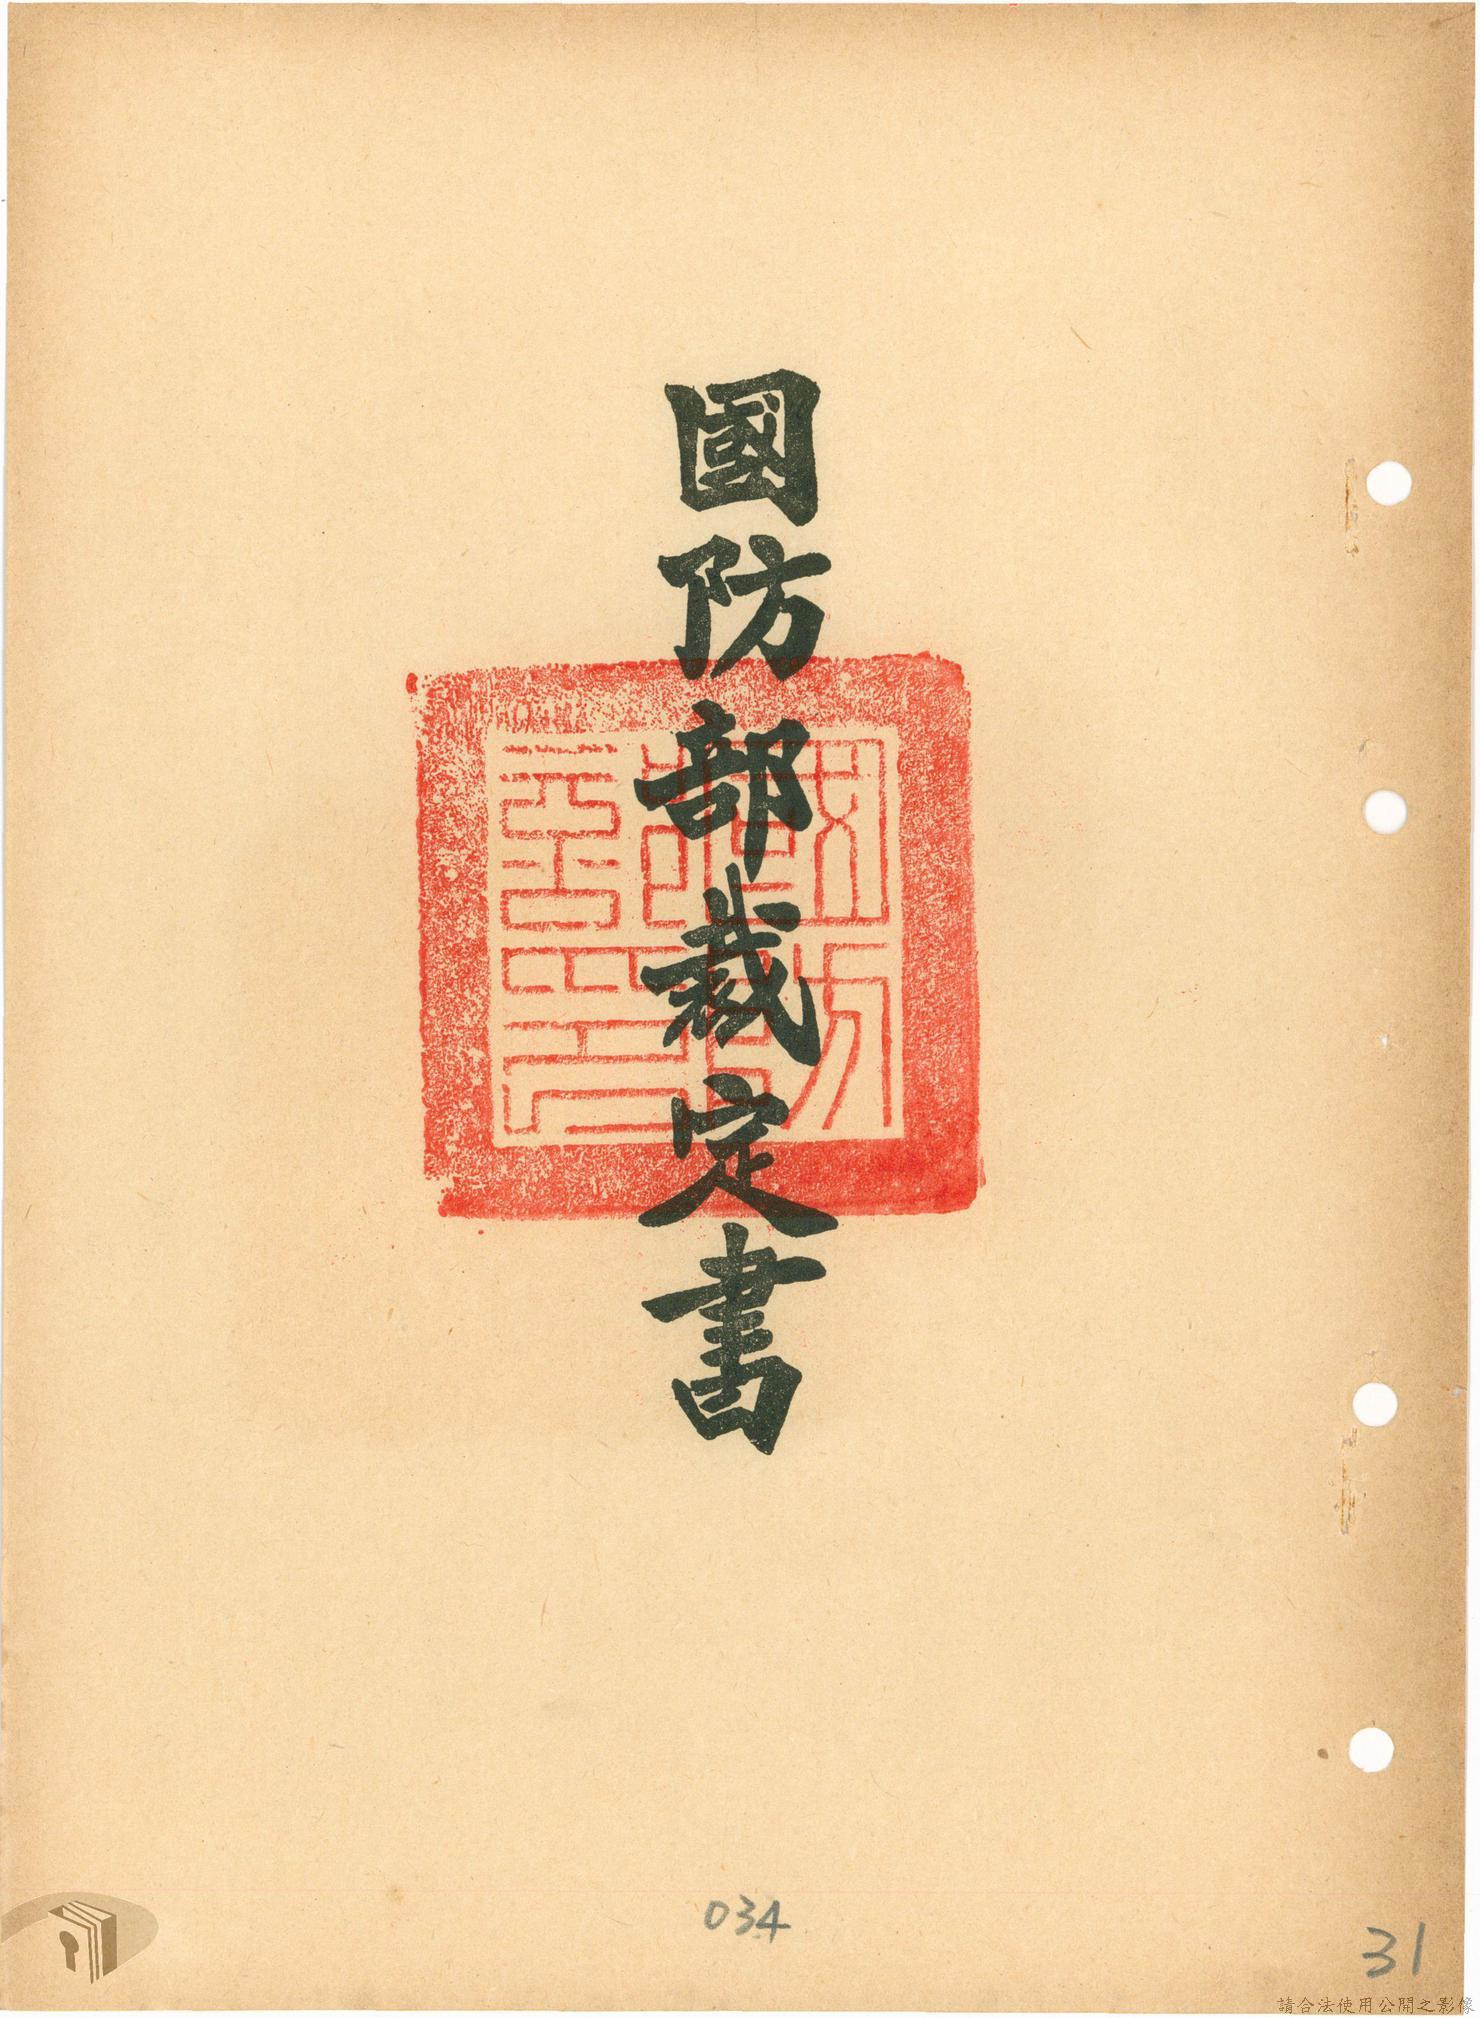 國防部裁定書
034
31
請合法使用公開之影像